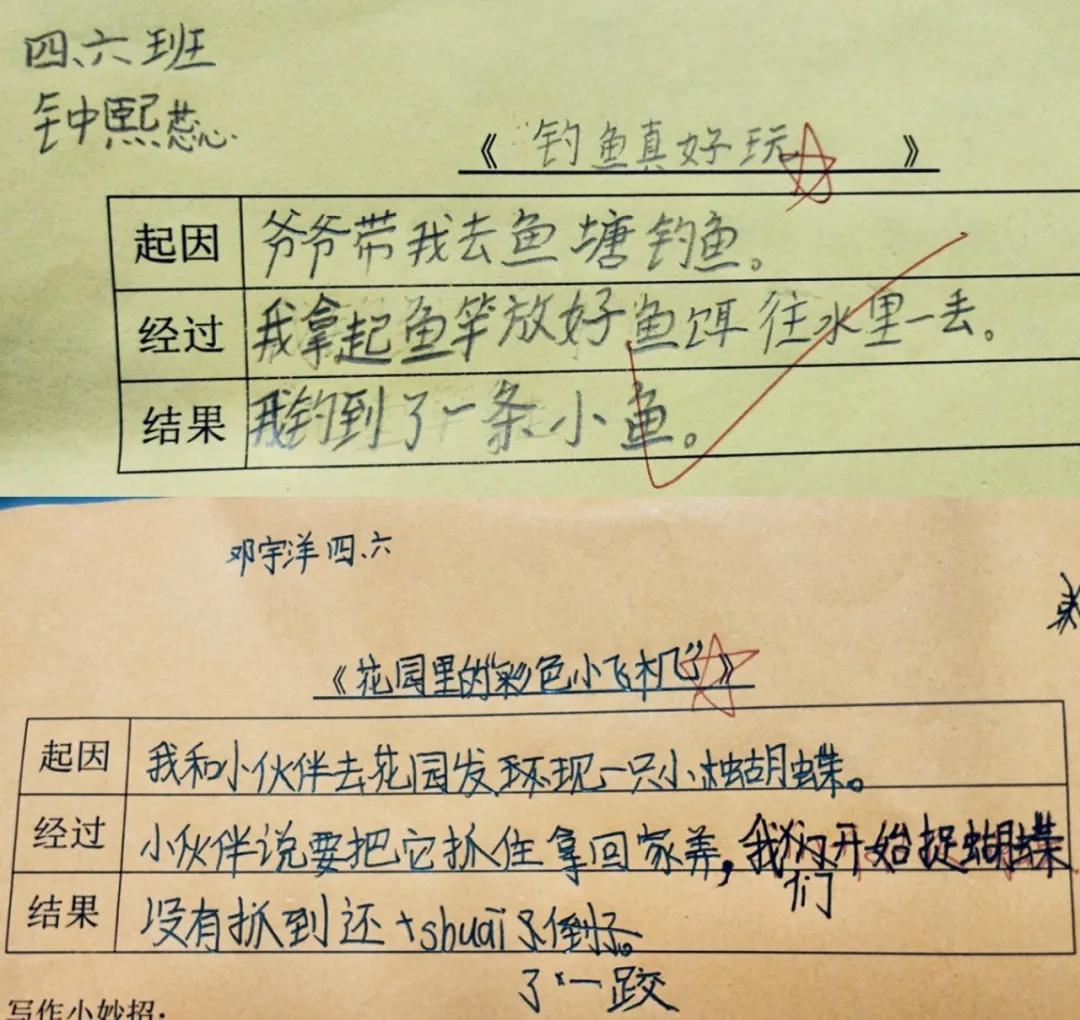 四、六班
钟熙蕊
《钓鱼真好玩》
起因 爷爷带我去鱼塘钓鱼。
经过 我拿起鱼竿放好鱼饵往水里一丢。
结果 我钓到了一条小鱼。
邓宇洋四、六
《花园里的“彩色小飞机”》
起因 我和小伙伴去花园发现一只小蝴蝶。
经过 小伙伴说要把它抓住拿回家养，我们开始捉蝴蝶
结果 没有抓到还shuāi
了一跤
写作小妙招：